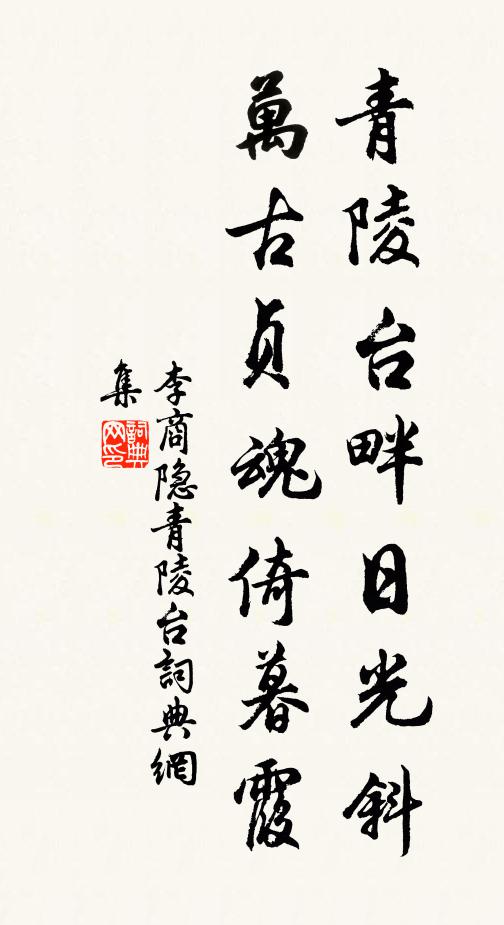 青陵台畔日光斜
萬古贞魂倚暮霞
李商隐青陵台詞典網
集
詞典网印